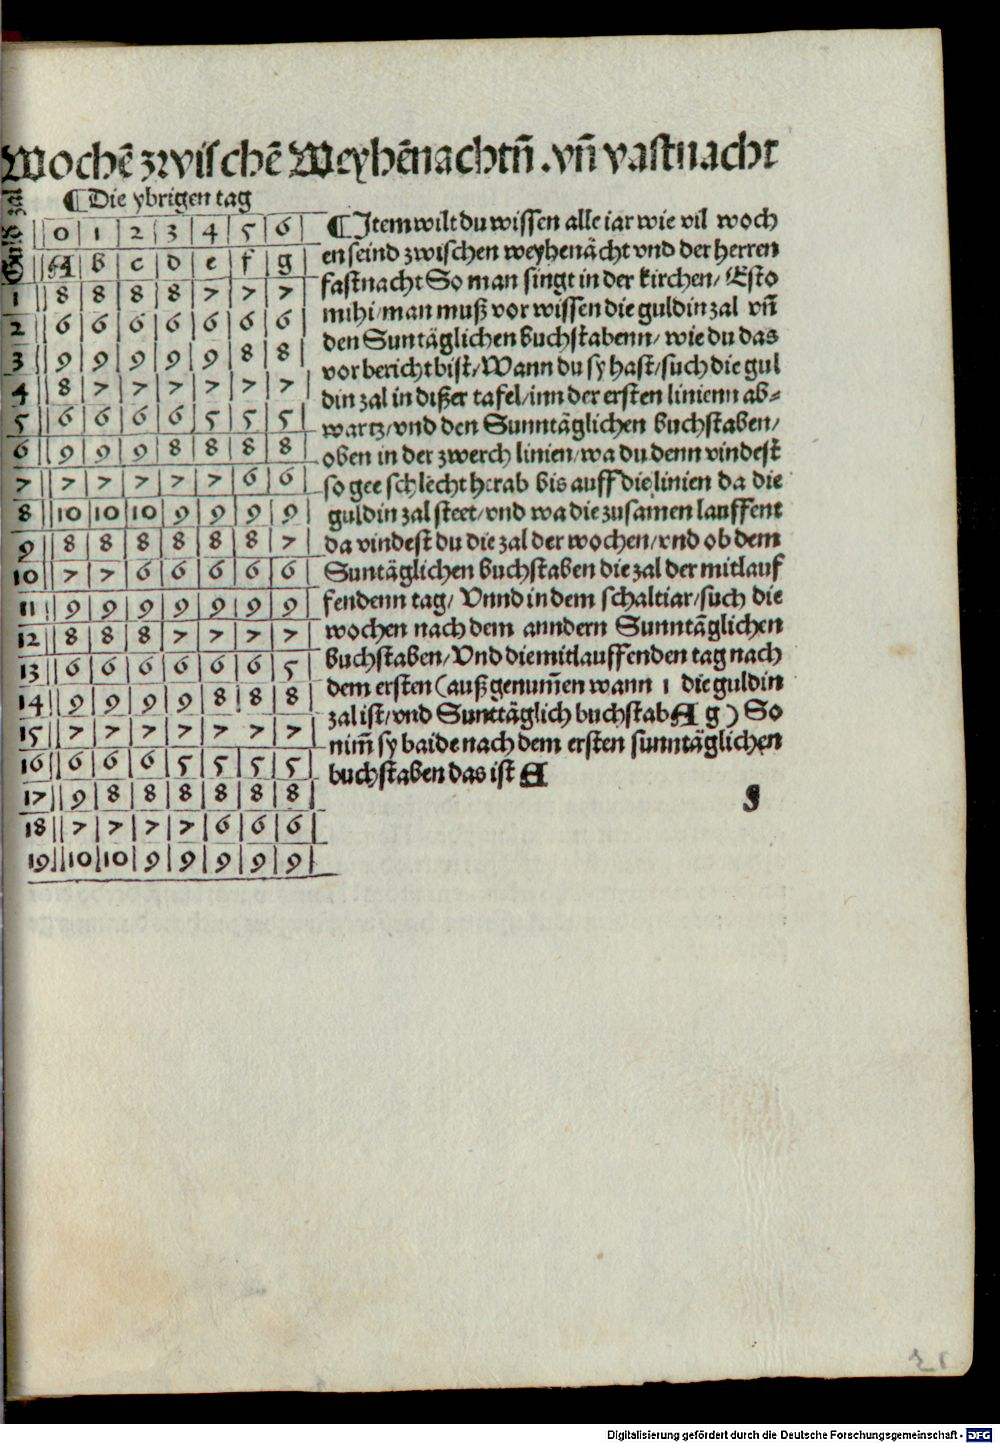 Wochẽ zwischẽ Weyhẽnachtñ .vñ vastnacht
¶Die ybrigen tag
Guld zal
0 1 2 3 4 5 6
A b c d e f g
1 8 8 8 8 7 7 7
2 6 6 6 6 6 6 6
3 9 9 9 9 9 8 8
4 8 7 7 7 7 7 7
5 6 6 6 6 5 5 5
6 9 9 9 8 8 8 8
7 7 7 7 7 7 6 6
8 10 10 10 9 9 9 9
9 8 8 8 8 8 8 7
10 7 7 6 6 6 6 6
11 9 9 9 9 9 9 9
12 8 8 8 7 7 7 7
13 6 6 6 6 6 6 5
14 9 9 9 9 8 8 8
15 7 7 7 7 7 7 7
16 6 6 6 5 5 5 5
17 9 8 8 8 8 8 8
18 7 7 7 7 6 6 6
19 10 10 9 9 9 9 9
¶Item wilt du wissen alle iar wie vil woch
en seind zwischen weyhenächt vnd der herren
fastnacht So man singt in der kirchen/ Esto
mihi/man muß vor wissen die guldin zal vñ
den Suntäglichen buchstabenn/ wie du das
vor bericht bist/Wann du sy hast/such die gul
din zal in dißer tafel/inn der ersten linienn ab⸗
wartz/vnd den Sunntäglichen buchstaben/
oben in der zwerch linien/wa du denn vindest
so gee schlecht herab bis auff die linien da die
guldin zal steet/vnd wa die zusamen lauffent
da vindest du die zal der wochen/vnd ob dem
Suntäglichen buchstaben die zal der mitlauf
fendenn tag/ Vnnd in dem schaltiar/such die
wochen nach dem anndern Sunntäglichen
buchstaben/Vnd die mitlauffenden tag nach
dem ersten (auß genum̃en wann 1 die guldin
zal ist/vnd Sunttäglich buchstab A g) So
nim̃ sy baide nach dem ersten sunntäglichen
buchstaben das ist A
Digitalisierung gefördert durch die Deutsche Forschungsgemeinschaft - DFG